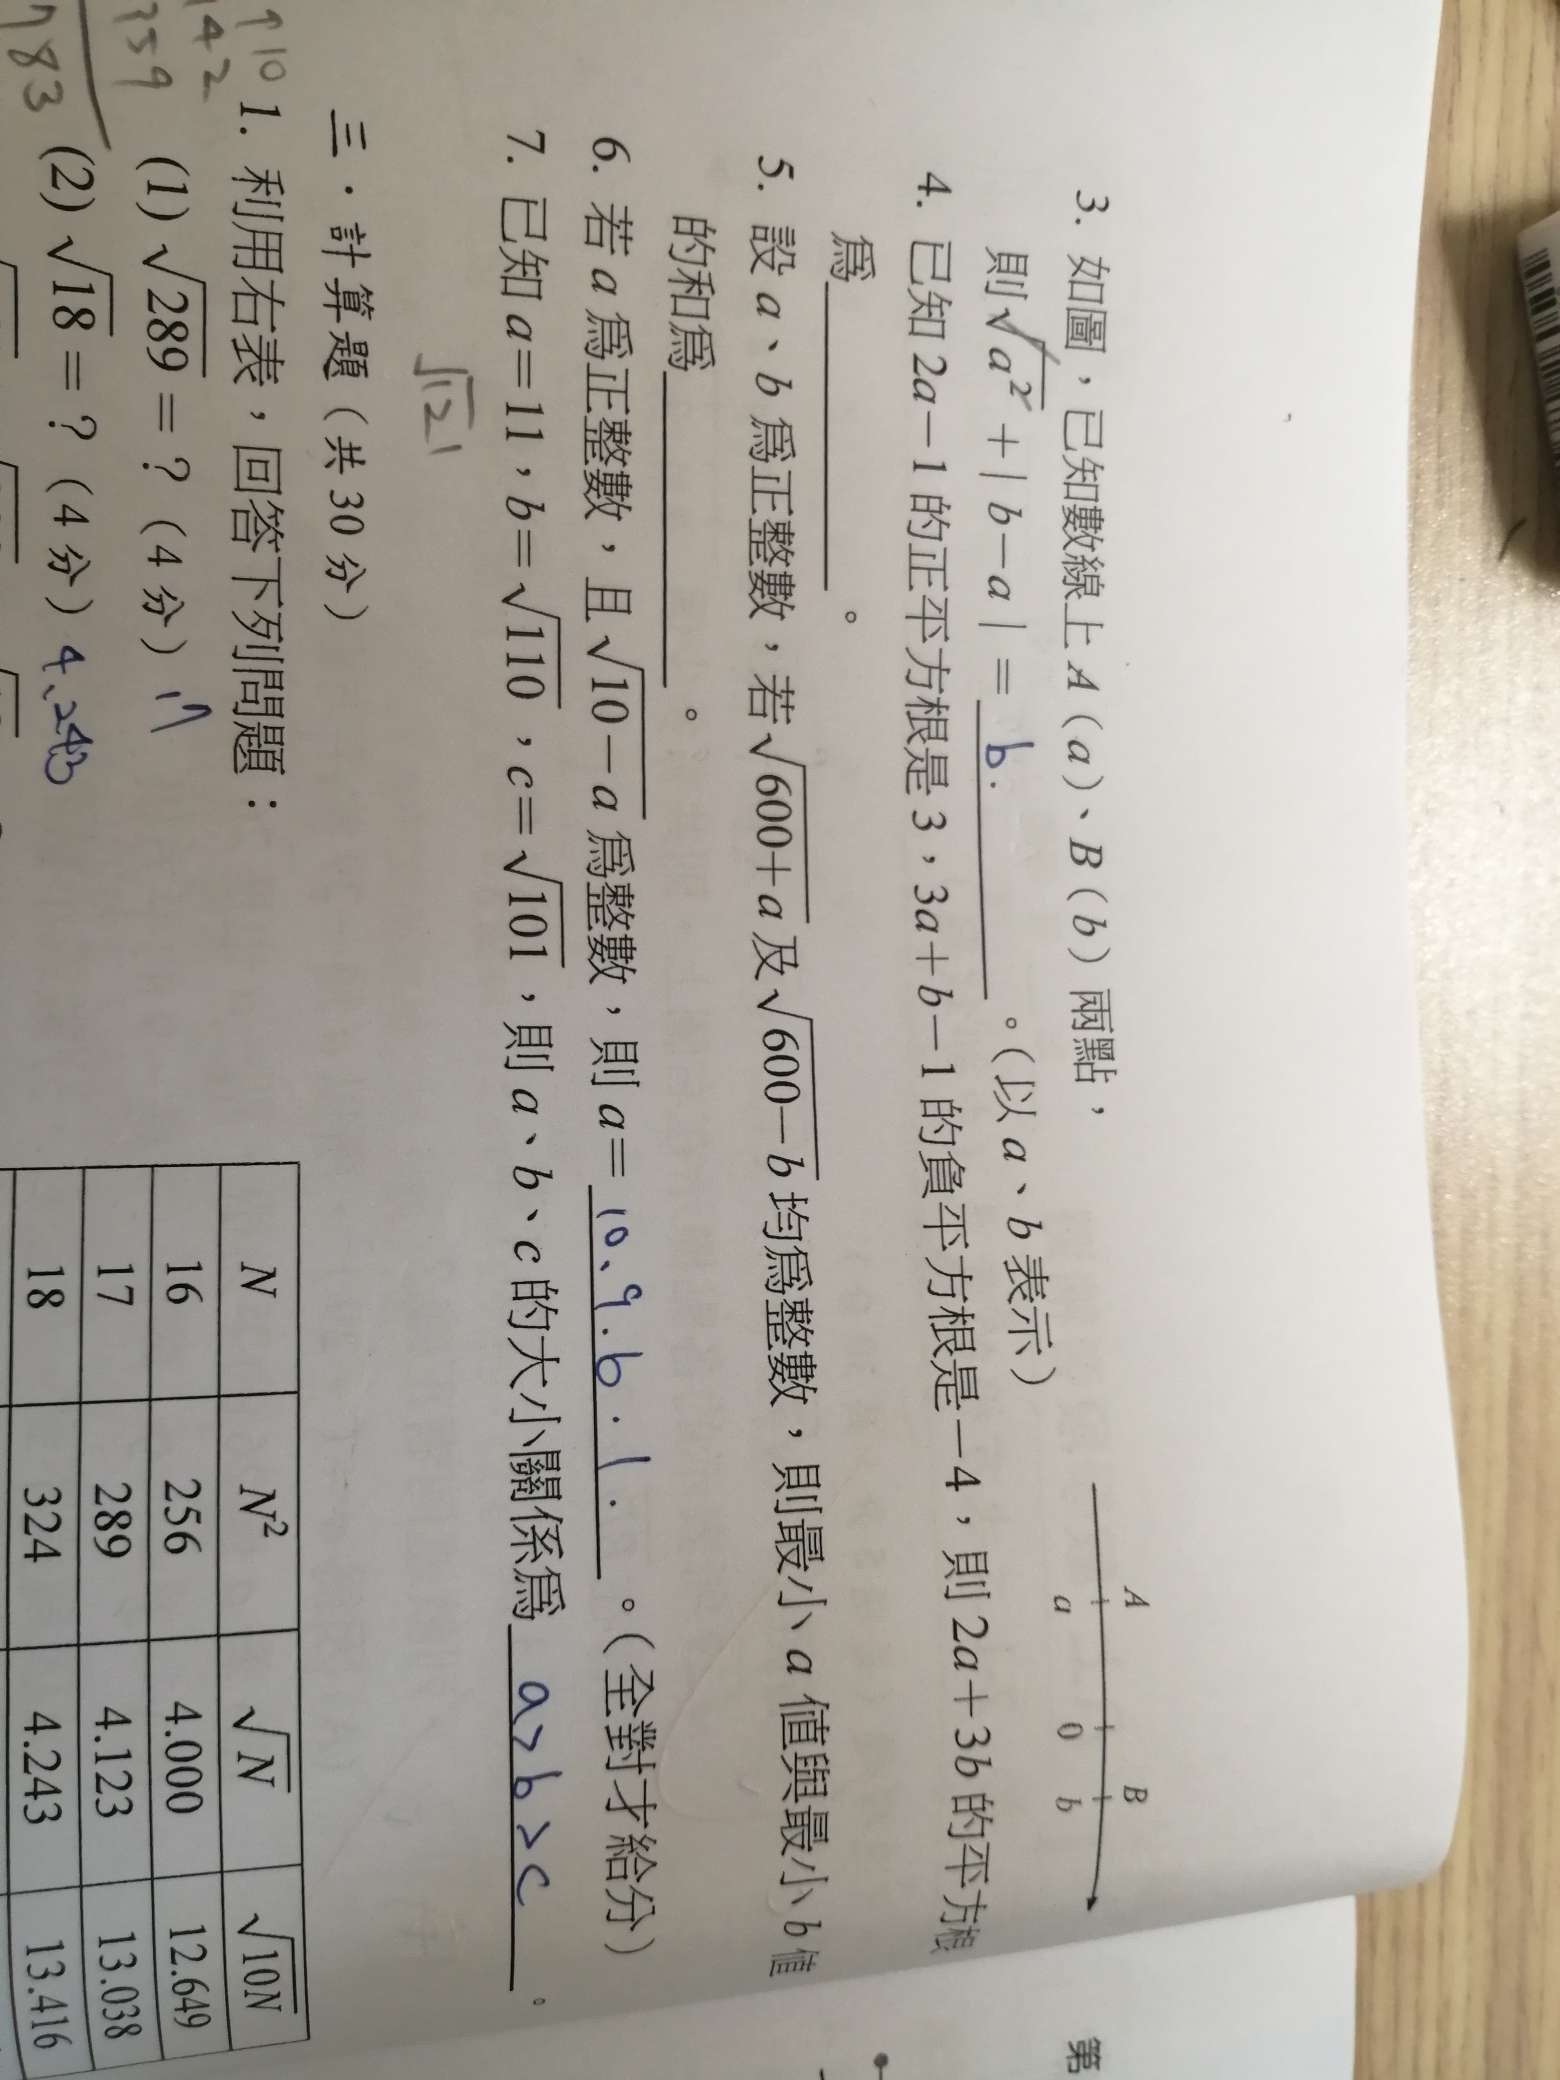 3. 如圖，已知數線上 A(a)、B(b) 兩點，
則√a² + | b－a | = b. 。(以 a、b 表示)
A B
a 0 b
4. 已知 2a－1 的正平方根是 3，3a＋b－1 的負平方根是－4，則 2a＋3b 的平方根
為 。
5. 設 a、b 為正整數，若√600+a 及√600－b 均為整數，則最小 a 值與最小 b 值
的和為 。
6. 若 a 為正整數，且√10－a 為整數，則 a= 10、9.6.1. 。(全對才給分)
7. 已知 a=11，b=√110，c=√101，則 a、b、c 的大小關係為 a>b>c 。
√121
三．計算題 (共 30 分)
1. 利用右表，回答下列問題：
(1) √289 = ? (4 分) 17
(2) √18 = ? (4 分) 4、243
N N² √N √10N
16 256 4.000 12.649
17 289 4.123 13.038
18 324 4.243 13.416
第